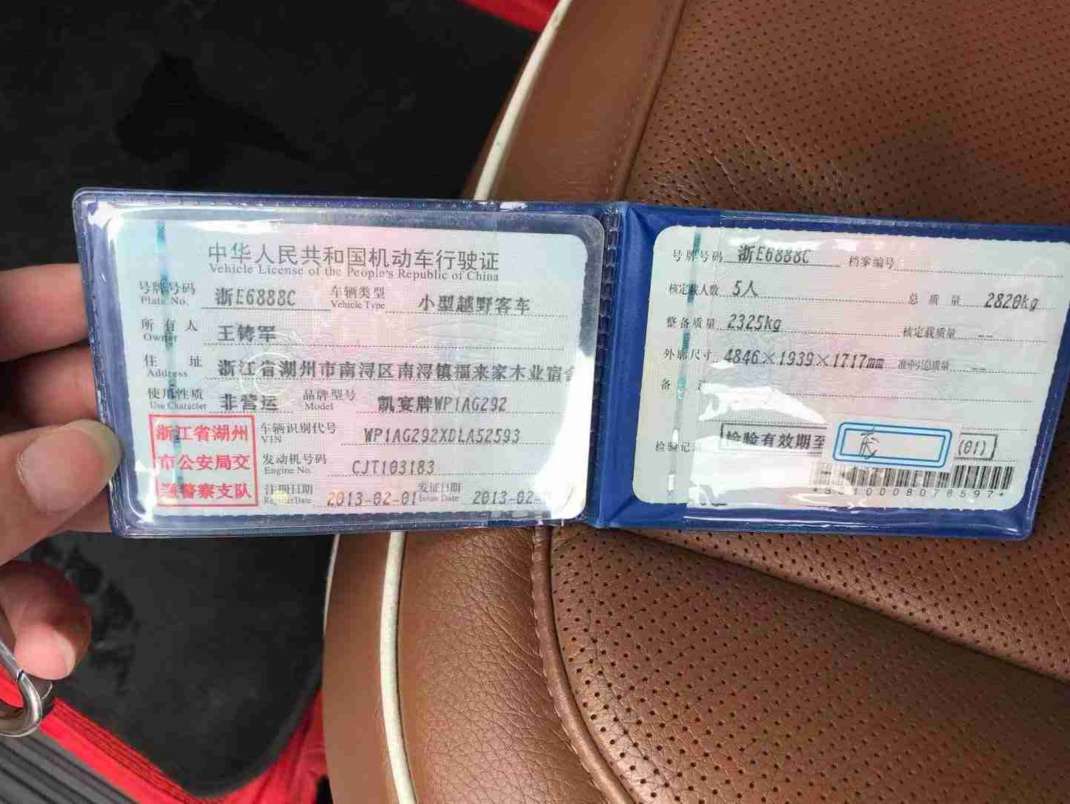 中华人民共和国机动车行驶证
Vehicle License of the People's Republic of China
号牌号码 浙E6888C 车辆类型 小型越野客车
Plate No. Vehicle Type
所有人 王铸军
Owner
住址 浙江省湖州市南浔区南浔镇福来家木业宿舍
Address
使用性质 非营运 品牌型号 凯宴牌WP1AG292
Use Character Model
浙江省湖州
市公安局交
警察支队
车辆识别代号 WP1AG292XDLA52593
VIN
发动机号码 CJT103183
Engine No.
注册日期 2013-02-01 发证日期 2013-02-
Register Date Issue Date
号牌号码 浙E6888C 档案编号
核定载人数 5人 总质量 2820kg
整备质量 2325kg 核定载质量 --
外廓尺寸 4846×1939×1717mm 准牵引总质量 --
备注
检验记 检验有效期至 (01)